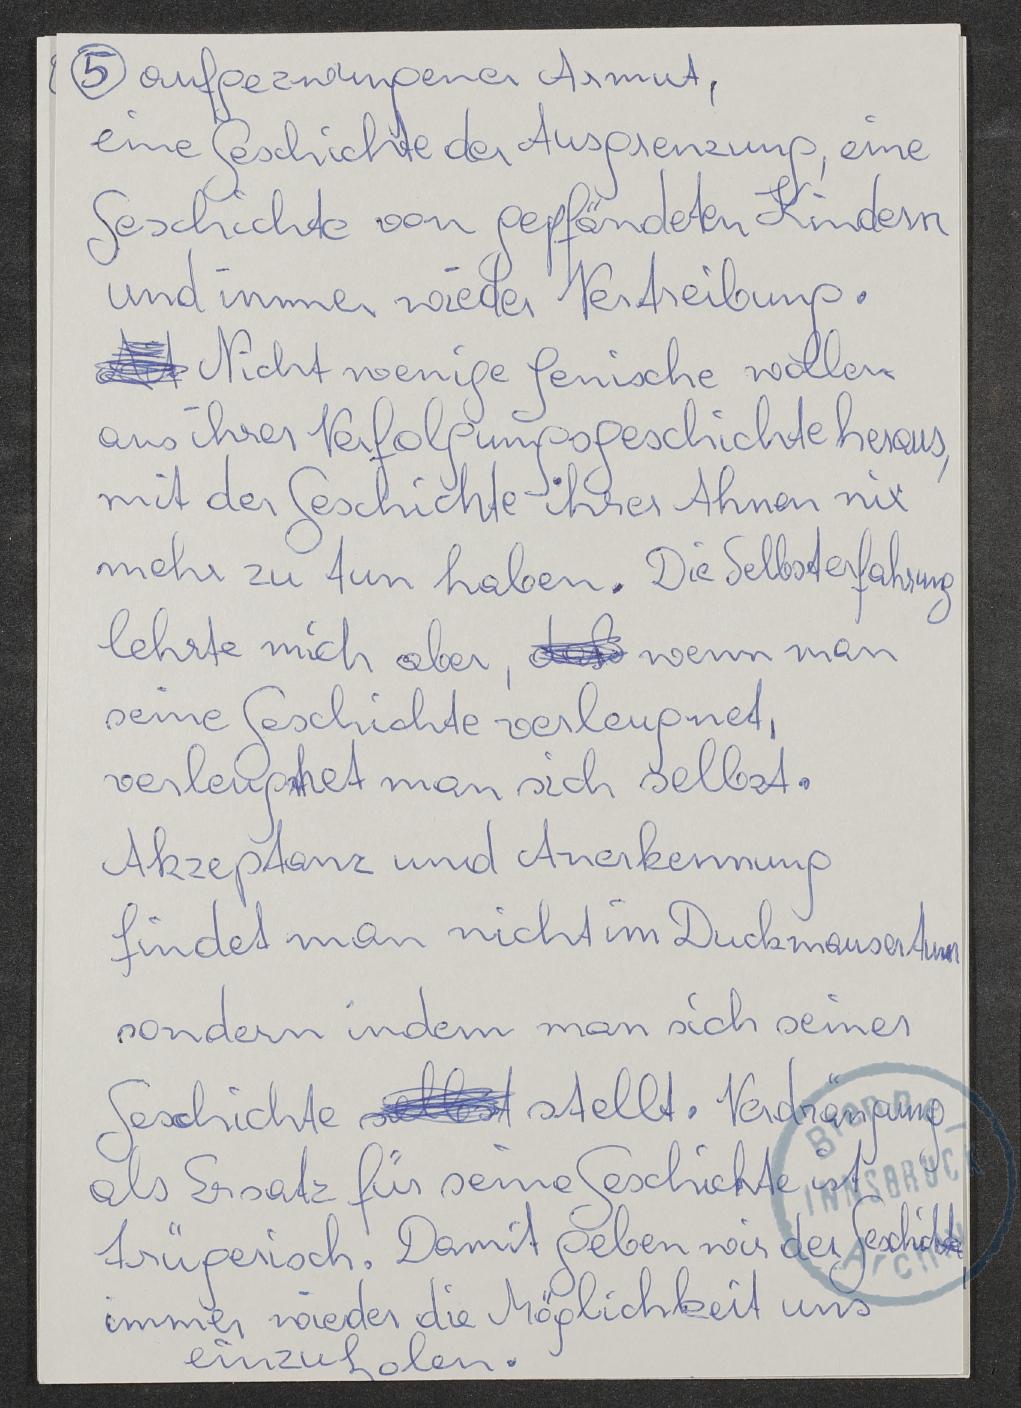 5 aufgezwungener Armut,
eine Geschichte der Ausgrenzung, eine
Geschichte von gepfändeten Kindern
und immer wieder Vertreibung.
Nicht wenige Jenische wollen
aus ihrer Verfolgungsgeschichte heraus,
mit der Geschichte ihrer Ahnen nix
mehr zu tun haben. Die Selbsterfahrung
lehrte mich aber, wenn man
seine Geschichte verleugnet,
verleugnet man sich selbst.
Akzeptanz und Anerkennung
findet man nicht im Duckmausertum
sondern indem man sich seiner
Geschichte selbst stellt. Verdrängung
als Ersatz für seine Geschichte ist
trügerisch. Damit geben wir der Geschichte
immer wieder die Möglichkeit uns
einzuholen.
Brenner-
INNSBRUCK
Archiv